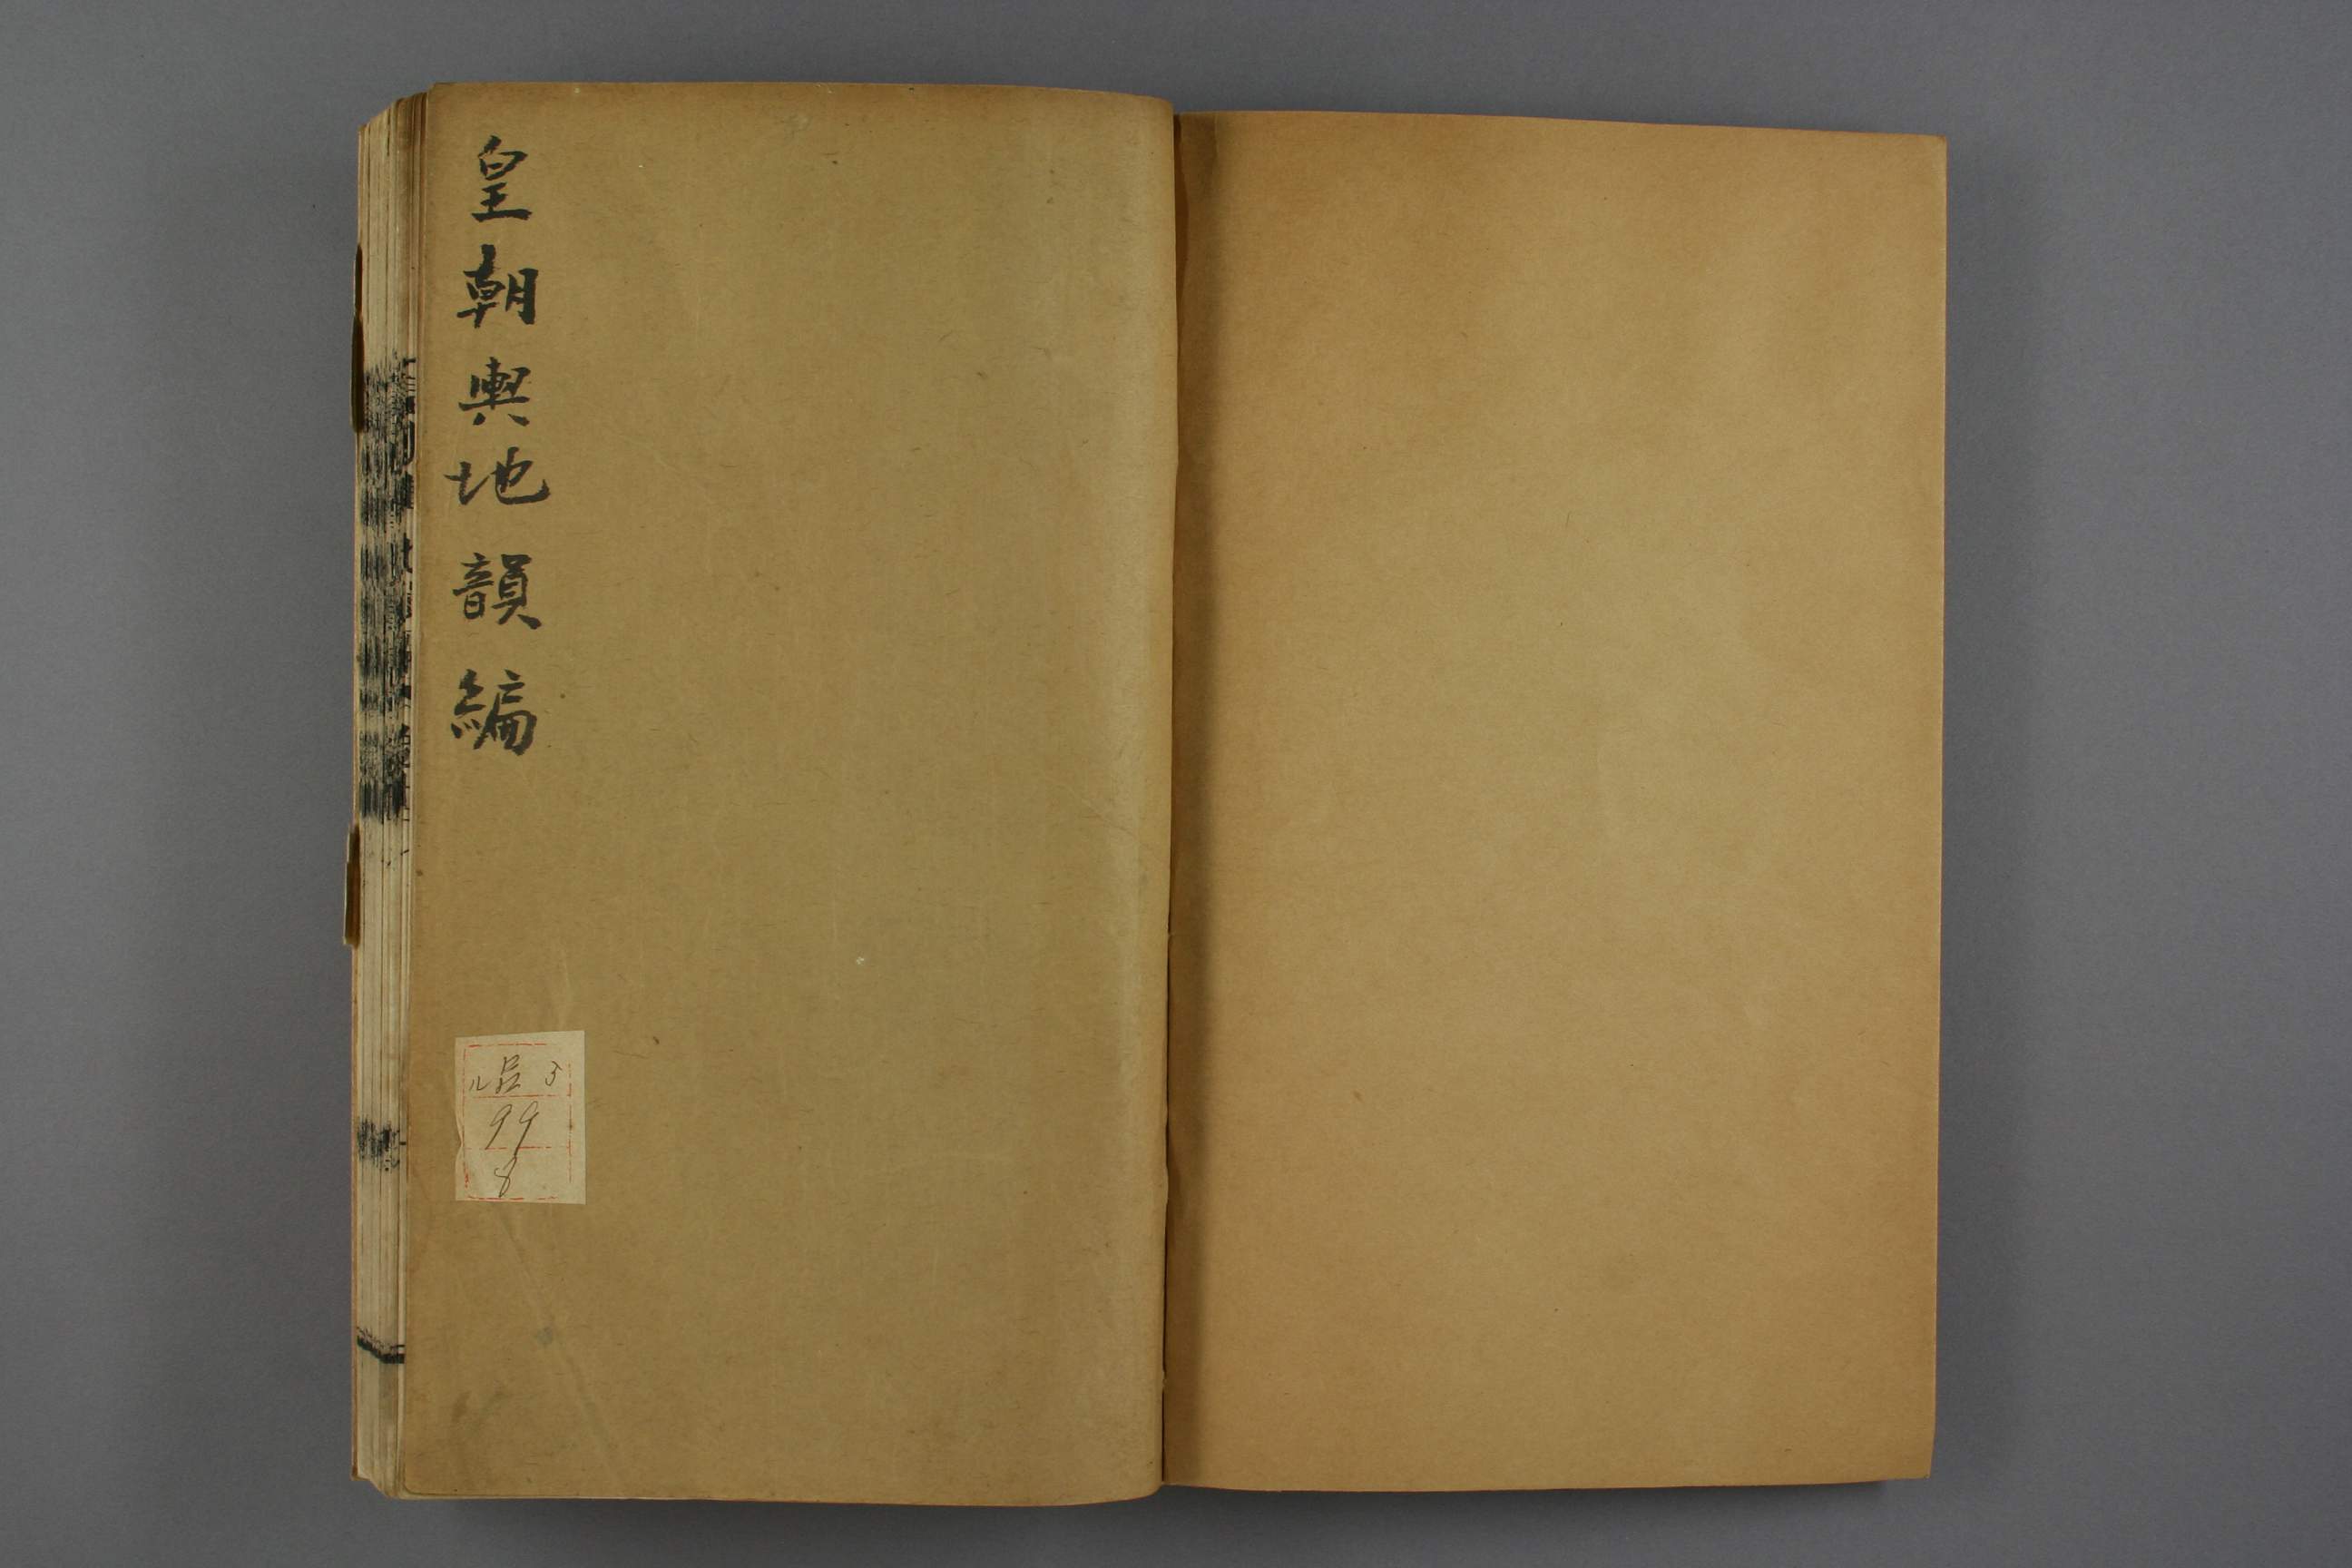 皇朝輿地韻編
ル5
99
8